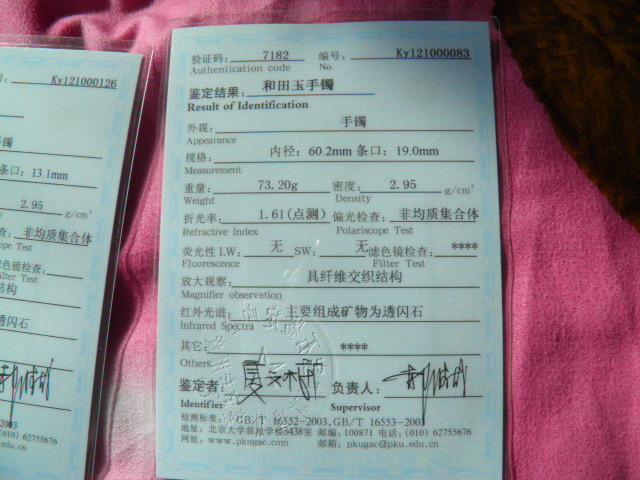 Ky121000126
手镯
条口：13.1mm
2.95 g/cm³
查：非均质集合体
scope Test
滤色镜检查：
Filter Test
结构
透闪石
(010) 62755676
edu.cn
验证码： 7182 编号： Ky121000083
Authentication code No.
鉴定结果： 和田玉手镯
Result of Identification
外观： 手镯
Appearance
规格： 内径：60.2mm 条口：19.0mm
Measurement
重量： 73.20g 密度： 2.95 g/cm³
Weight Density
折光率： 1.61(点测) 偏光检查： 非均质集合体
Refractive Index Polariscope Test
荧光性 LW： 无 SW： 无 滤色镜检查： ****
Fluorescence Filter Test
放大观察： 具纤维交织结构
Magnifier observation
红外光谱： 主要组成矿物为透闪石
Infrared Spectra
其它： ****
Others
鉴定者： 负责人：
Identifier Supervisor
检测标准： GB/T 16552-2003,GB/T 16553-2003
地址：北京大学新地学楼3438室 邮编：100871 电话：(010) 62755676
网址：www.pkugac.com 邮箱：pkugac@pku.edu.cn